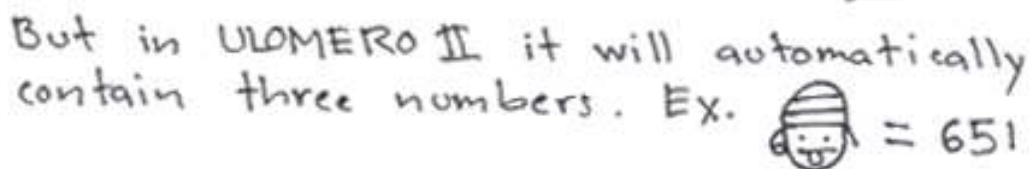 But in ULOMERO II it will automatically
contain three numbers. Ex. = 651